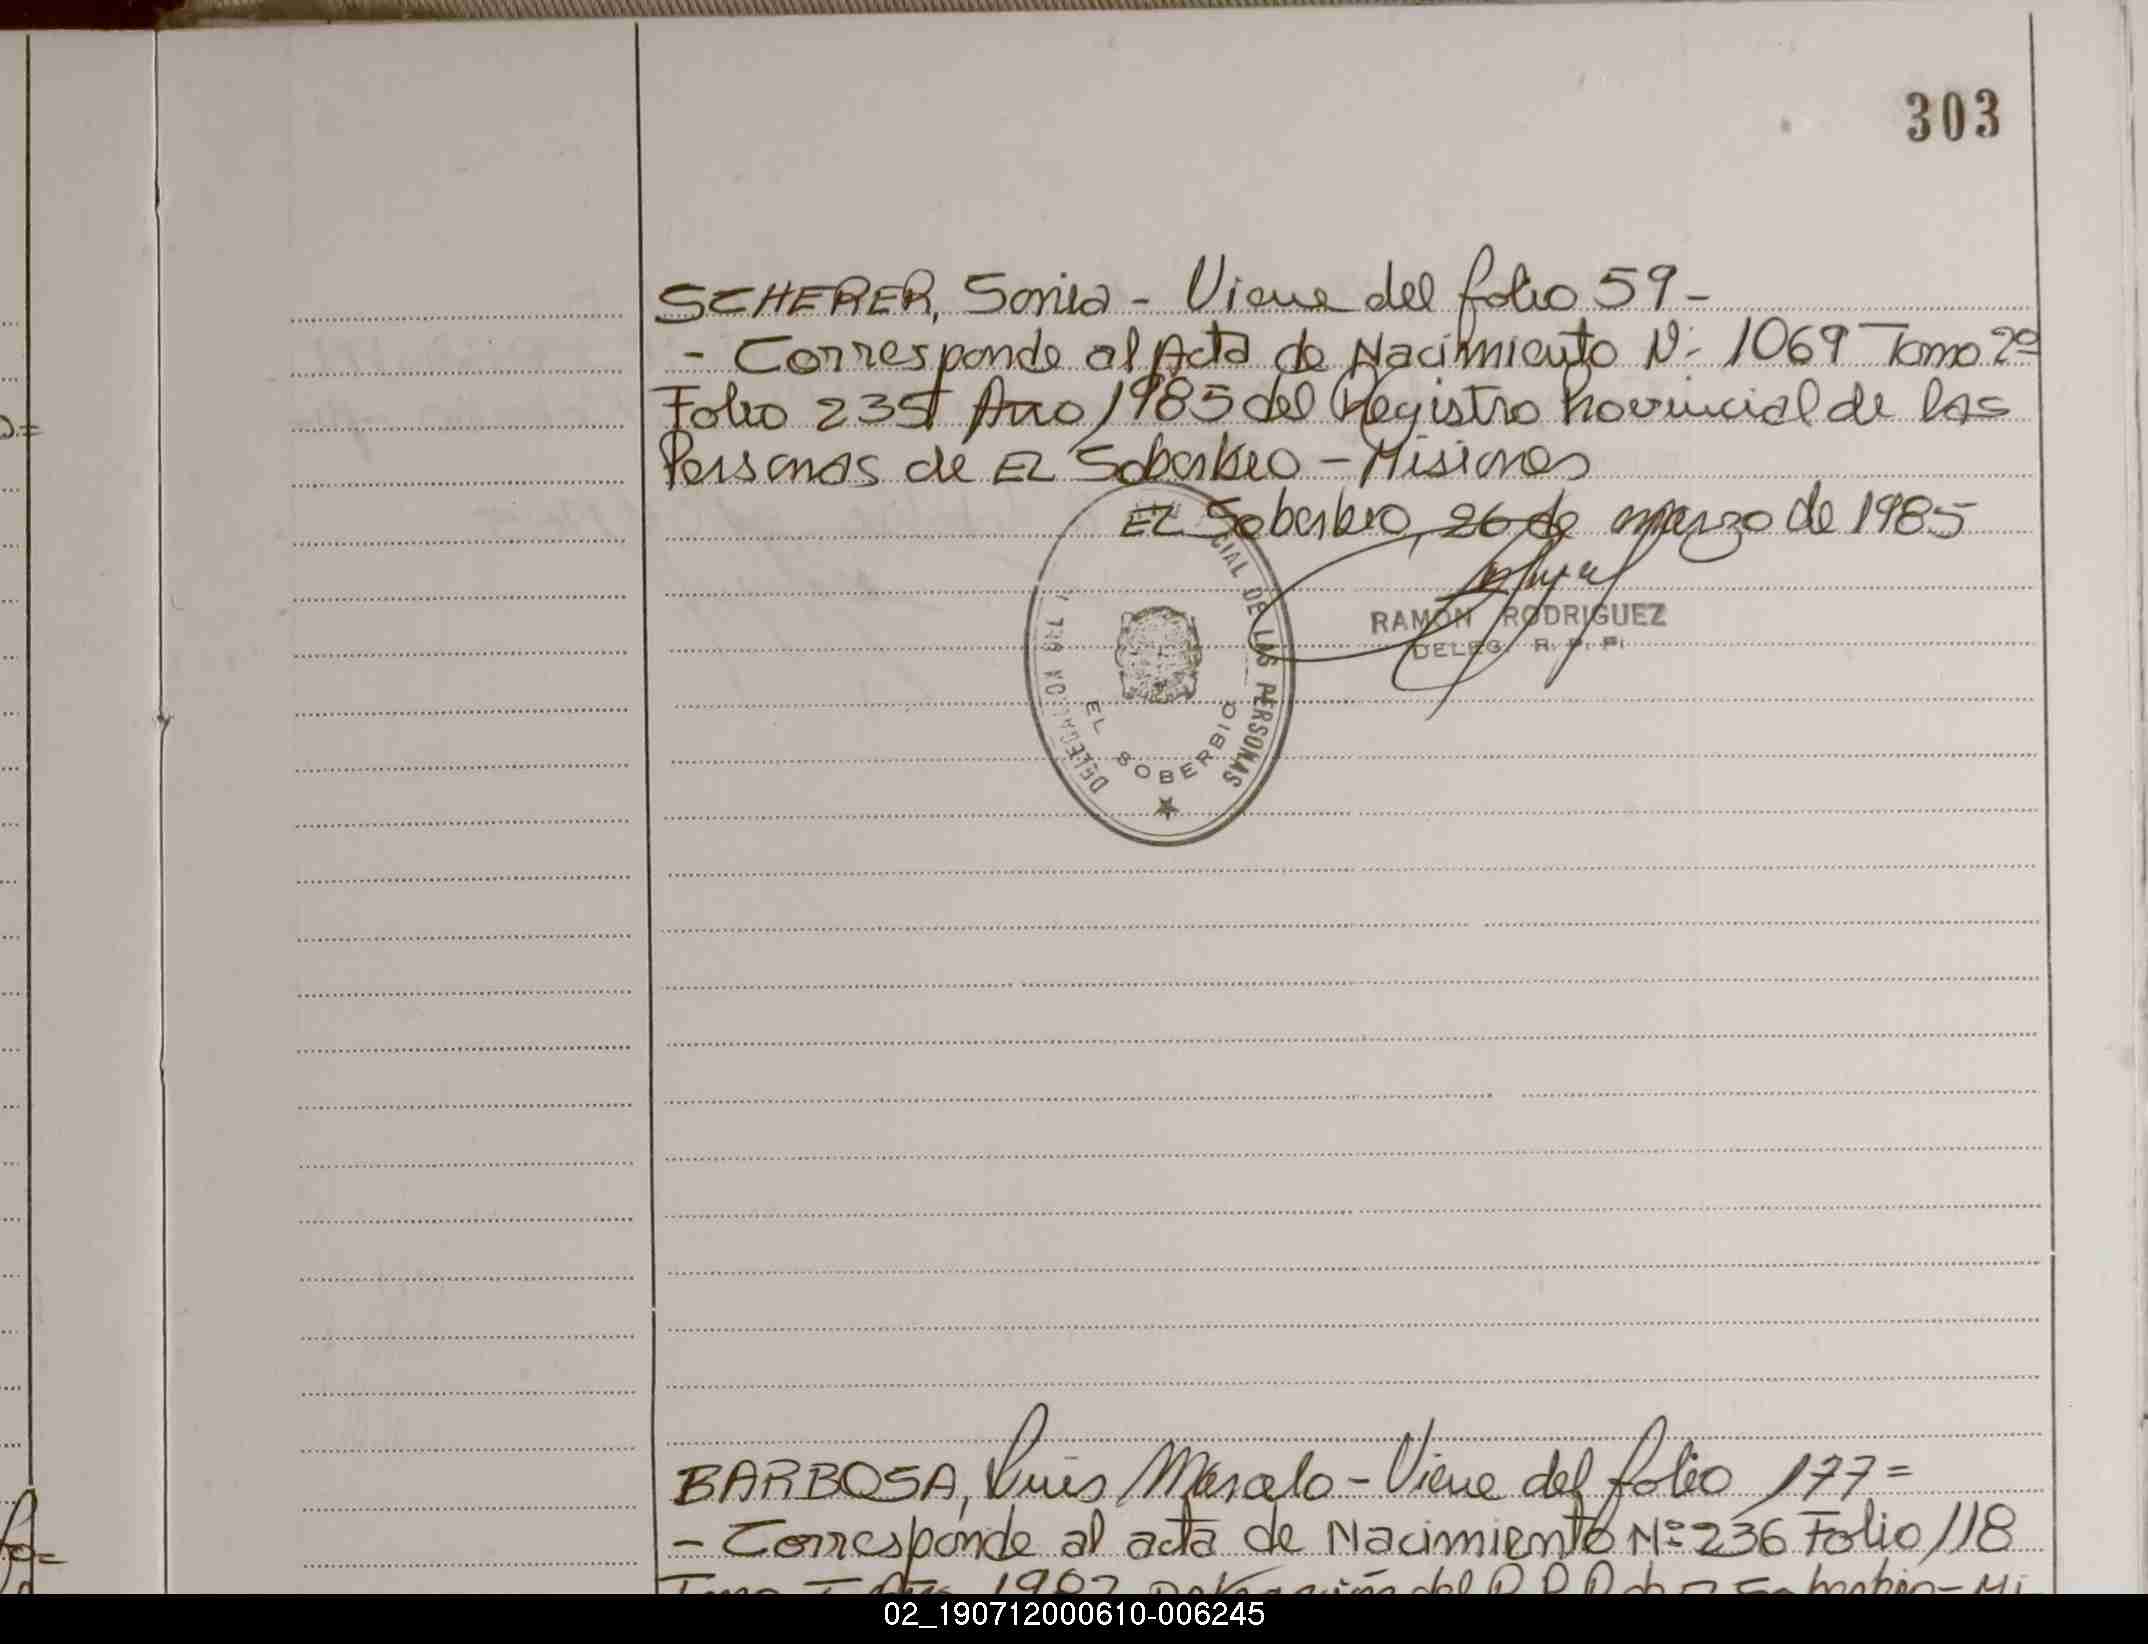 303
SCHERER, Sonia - Viene del folio 59 -
- Corresponde al Acta de Nacimiento N: 1069 Tomo 2º
Folio 235 Año 1985 del Registro Provincial de las
Personas de EL Soberbio - Misiones
EL Soberbio, 26 de marzo de 1985
RAMON RODRIGUEZ
DELEG. R. P. P.
DELEGACION CIAL DE LAS PERSONAS
EL SOBERBIO
BARBOSA, Luis Marcelo - Viene del folio 177 =
- Corresponde al acta de Nacimiento Nº 236 Folio 118
02_190712000610-006245